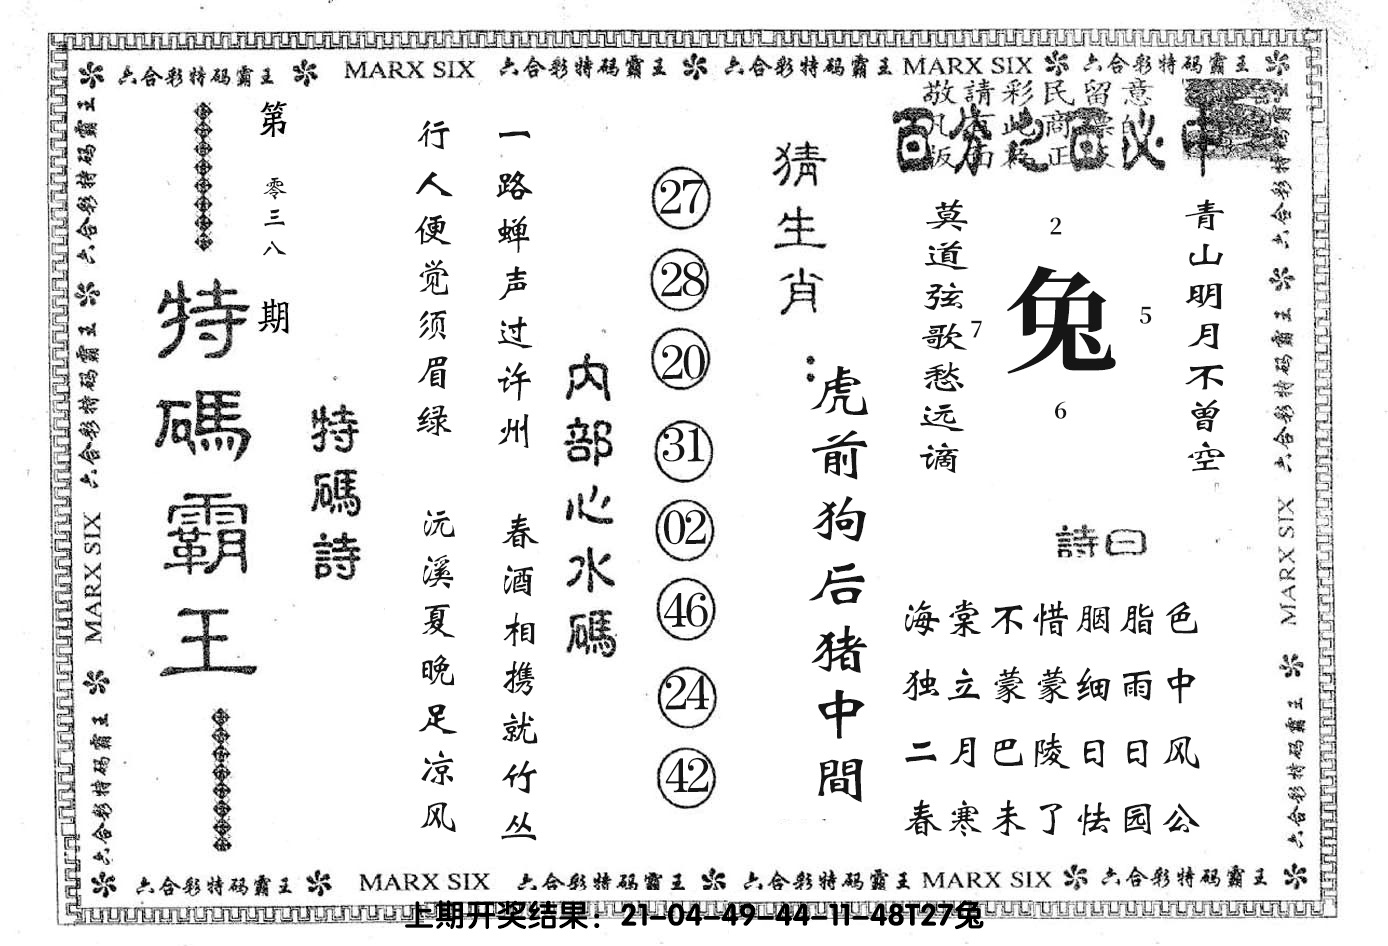 六合彩特码霸王 MARX SIX 六合彩特码霸王 六合彩特码霸王 MARX SIX 六合彩特码霸王
敬請彩民留意
百分之百必中
青山明月不曾空
莫道弦歌愁远谪
2
兔
7
5
6
詩曰
海棠不惜胭脂色
独立蒙蒙细雨中
二月巴陵日日风
春寒未了怯园公
猜生肖：
虎前狗后猪中間
27
28
20
31
02
46
24
42
内部心水碼
一路蝉声过许州
春酒相携就竹丛
行人便觉须眉绿
沅溪夏晚足凉风
特碼詩
第零三八期
特碼霸王
六合彩特码霸王 六合彩特码霸王 MARX SIX 六合彩特码霸王
六合彩特码霸王 六合彩特码霸王 MARX SIX 六合彩特码霸王
六合彩特码霸王 MARX SIX 六合彩特码霸王 六合彩特码霸王 MARX SIX 六合彩特码霸王
上期开奖结果：21-04-49-44-11-48T27兔